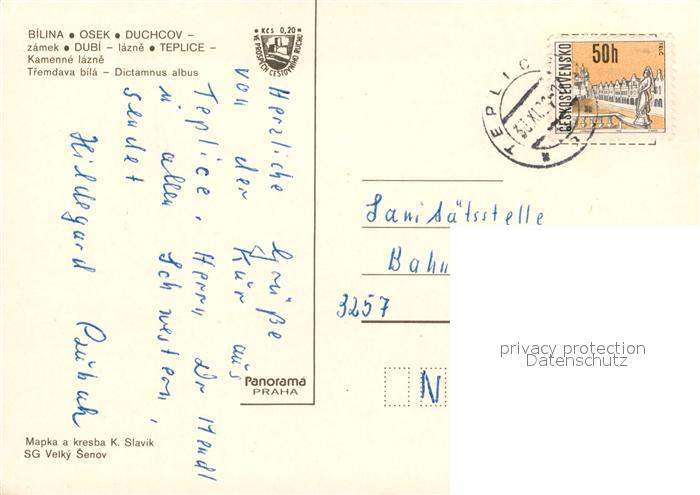 BÍLINA ● OSEK ● DUCHCOV –
zámek ● DUBÍ – lázně ● TEPLICE –
Kamenné lázně
Třemdava bílá – Dictamnus albus
Kčs 0,20
VE PROSPĚCH CESTOVNÍHO RUCHU
Herzliche Grüße
von der Kur aus
Teplice, Herrn Dr
u allen Schwestern,
sendet
Hildegard
Panorama
PRAHA
Mapka a kresba K. Slavík
SG Velký Šenov
TEPLIC
30.XI.
50h
ČESKOSLOVENSKO
TELČ
Sanitätsstelle
Bahn
3257
N
privacy protection
Datenschutz